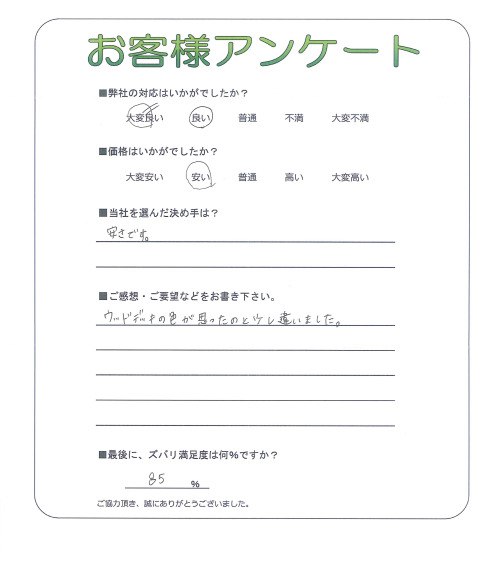 お客様アンケート
■弊社の対応はいかがでしたか？
大変良い 良い 普通 不満 大変不満
■価格はいかがでしたか？
大変安い 安い 普通 高い 大変高い
■当社を選んだ決め手は？
安さです。
■ご感想・ご要望などをお書き下さい。
ウッドデッキの色が思ったのと少し違いました。
■最後に、ズバリ満足度は何%ですか？
85 %
ご協力頂き、誠にありがとうございました。